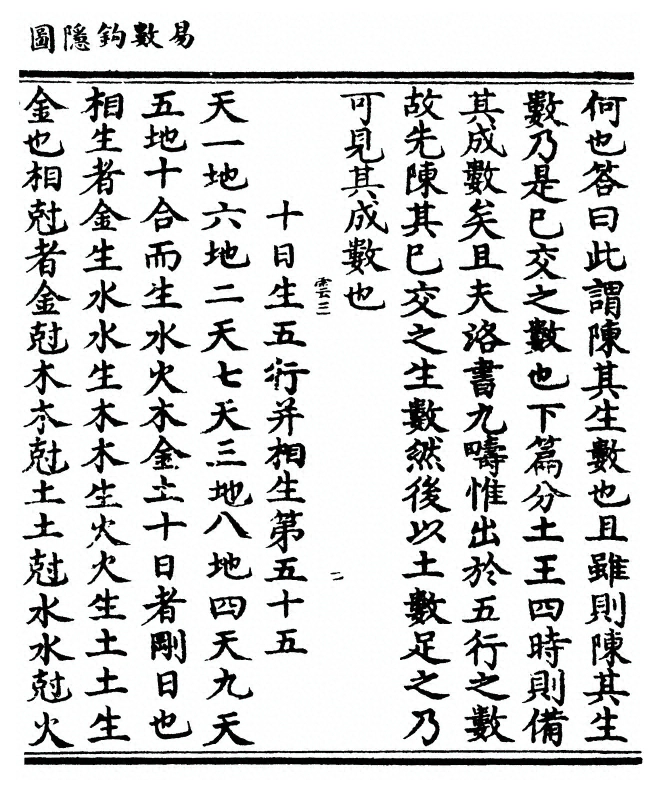 易數鈎隱圖
何也答曰此謂陳其生數也且雖則陳其生
數乃是巳交之數也下篇分土王四時則備
其成數矣且夫洛書九疇惟出於五行之數
故先陳其巳交之生數然後以土數足之乃
可見其成數也
雲三
二
十日生五行并相生第五十五
天一地六地二天七天三地八地四天九天
五地十合而生水火木金土十日者剛日也
相生者金生水水生木木生火火生土土生
金也相尅者金尅木木尅土土尅水水尅火